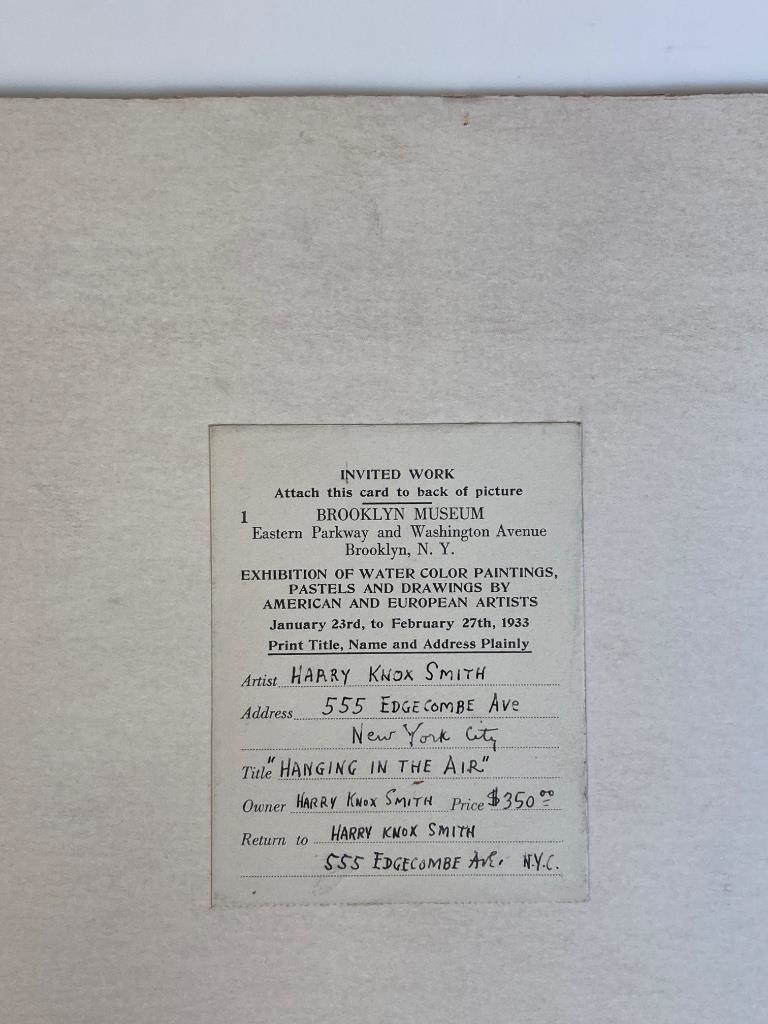 INVITED WORK
Attach this card to back of picture
1 BROOKLYN MUSEUM
Eastern Parkway and Washington Avenue
Brooklyn, N. Y.
EXHIBITION OF WATER COLOR PAINTINGS,
PASTELS AND DRAWINGS BY
AMERICAN AND EUROPEAN ARTISTS
January 23rd, to February 27th, 1933
Print Title, Name and Address Plainly
Artist HARRY KNOX SMITH
Address 555 EDGECOMBE AVE
New York City
Title "HANGING IN THE AIR"
Owner HARRY KNOX SMITH Price $350 00
Return to HARRY KNOX SMITH
555 EDGECOMBE AVE. N.Y.C.